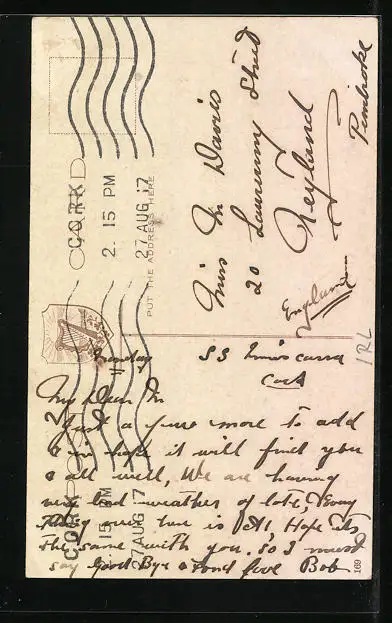 CORK
2. 15 PM
27 AUG 17
CARD
PUT THE ADDRESS HERE
Miss M Davis
20 Street
Neyland
Pembroke
England
IRL
Monday SS Inniscarra
Cork
My Dear M
Just a more to add
in hope it will find you
all well, We are having
very bad weather of late, Every
thing over here is A1, Hope its
the same with you. So I must
say Good Bye & Fond love Bob
CORK
2. 15 PM
27 AUG 17
169